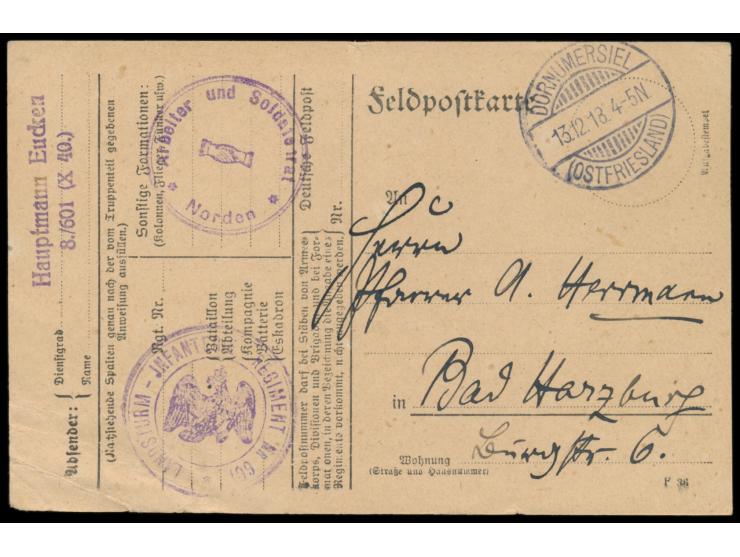 Absender:
Dienstgrad
Hauptmann Eucken
Name
8./601 (X 40.)
(Nachstehende Spalten genau nach der vom Truppenteil gegebenen
Anweisung ausfüllen.)
Sonstige Formationen:
(Kolonnen, Flieger, Funker usw.)
Arbeiter und Soldatenrat
* Norden *
Rgt. Nr.
Bataillon
Abteilung
Kompagnie
Batterie
Eskadron
LANDSTURM-INFANTERIE REGIMENT Nr 601
Deutsche Feldpost
Nr.
Feldpostnummer darf bei Stäben von Armee-
korps, Divisionen und Brigaden und bei For-
mationen, in deren Bezeichnung die Angabe eines
Regiments vorkommt, nicht angegeben werden.
Feldpostkarte
DORNUMERSIEL
13.12.18. 4-5N.
(OSTFRIESLAND)
An
Herrn
Pfarrer A. Herrmann
in Bad Harzburg
Burgstr. 6.
Wohnung
(Straße und Hausnummer)
F 36